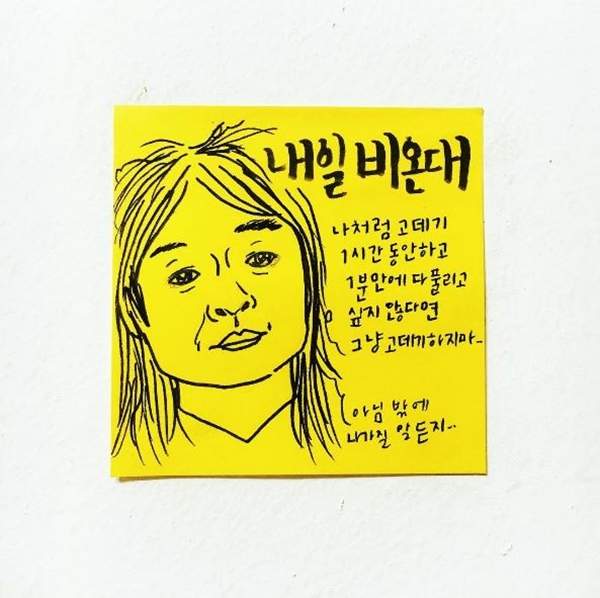 내일 비온대
나처럼 고데기
1시간 동안하고
1분만에 다풀리고
싶지 않다면
그냥 고데기하지마..
아님 밖에
나가질 말든지..